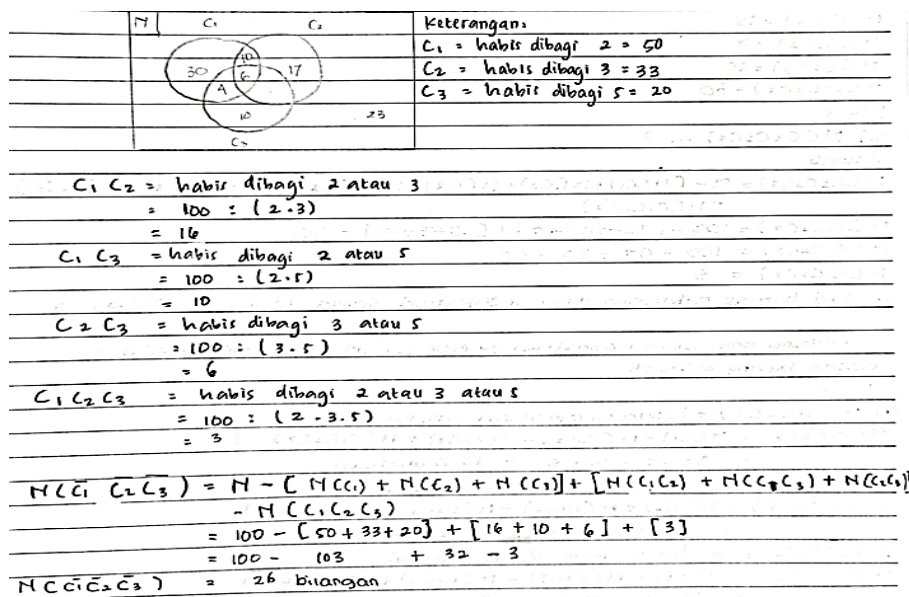 N C₁ C₂
30 10 17
6
4
10 23
C₃
Keterangan:
C₁ = habis dibagi 2 = 50
C₂ = habis dibagi 3 = 33
C₃ = habis dibagi 5 = 20
C₁ C₂ = habis dibagi 2 atau 3
= 100 : (2.3)
= 16
C₁ C₃ = habis dibagi 2 atau 5
= 100 : (2.5)
= 10
C₂ C₃ = habis dibagi 3 atau 5
= 100 : (3.5)
= 6
C₁ C₂ C₃ = habis dibagi 2 atau 3 atau 5
= 100 : (2.3.5)
= 3
N(C̅₁ C̅₂ C̅₃) = N - [N(C₁) + N(C₂) + N(C₃)] + [N(C₁C₂) + N(C₁C₃) + N(C₂C₃)]
- N(C₁C₂C₃)
= 100 - [50 + 33 + 20] + [16 + 10 + 6] + [3]
= 100 - 103 + 32 - 3
N(C̅₁C̅₂C̅₃) = 26 bilangan